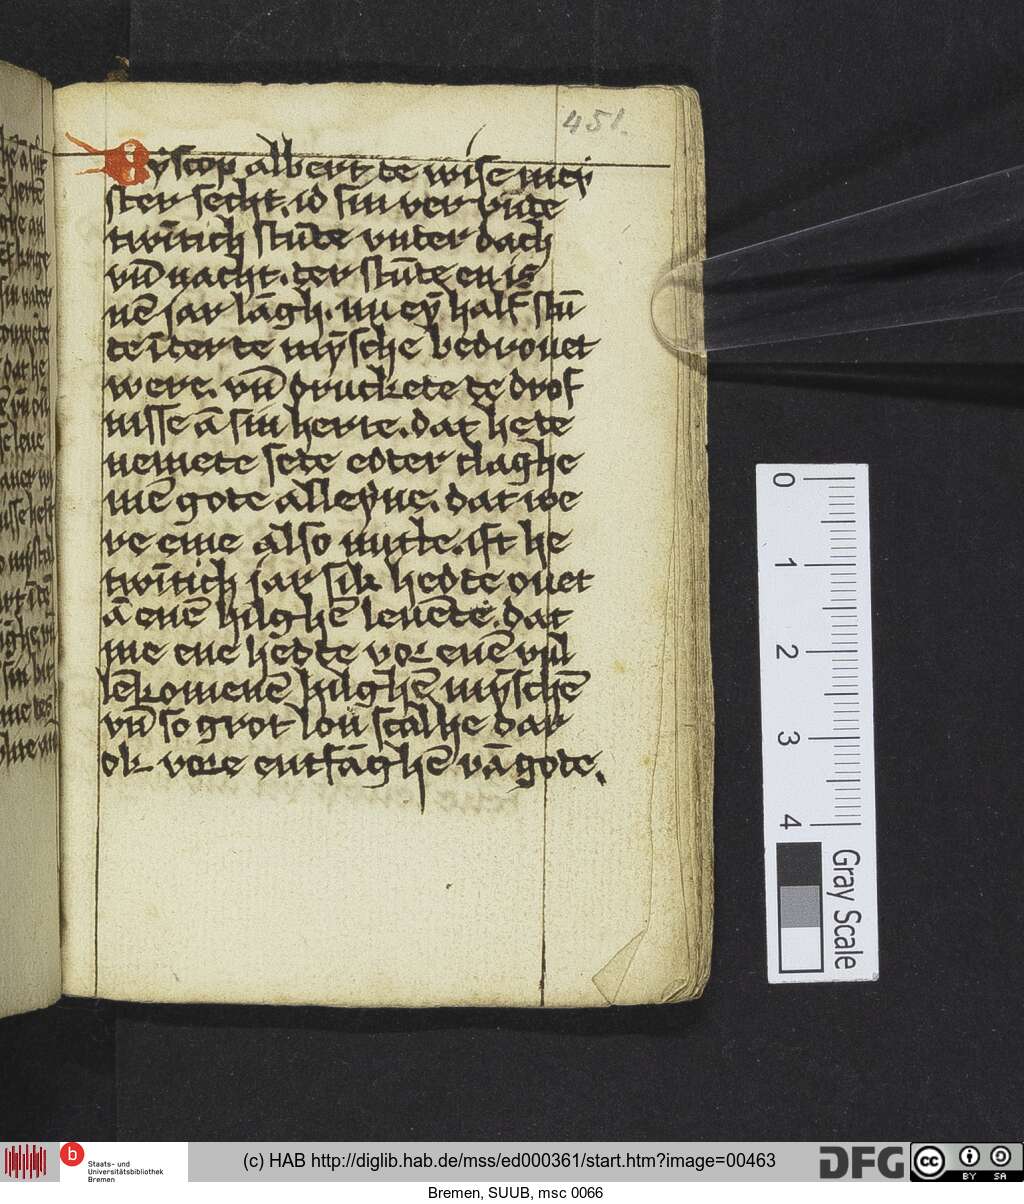 451.
Byscop albert te wise mey
ster secht. id sin ver vn̄te
twītich stūde vnter dach
vn̄ nacht. ter stūte en is
nē jar lāgh. nu eȳ half stū
te ī ter te mȳsche bedrouet
were. vn̄ druckete te drof
nisse ā sin herte. dat he te
nemete sete edter claghe
mē gote alleyne. dat we
re eme also nutte. ift he
twītich jar sik hedte ouet
ā enē hilghē leuēte. dat
me ene hedte vor enē vul
lēkomenē hilghē mȳschē
vn̄ so grot lon scal he dar
ok vore entfāghē vā gote.
0
1
2
3
4
Gray Scale
b
Staats- und
Universitätsbibliothek
Bremen
(c) HAB http://diglib.hab.de/mss/ed000361/start.htm?image=00463
DFG
cc
BY SA
Bremen, SUUB, msc 0066